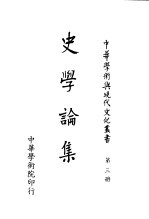 中華學術與現代文化叢書 第三冊
史學論集
中華學術院印行